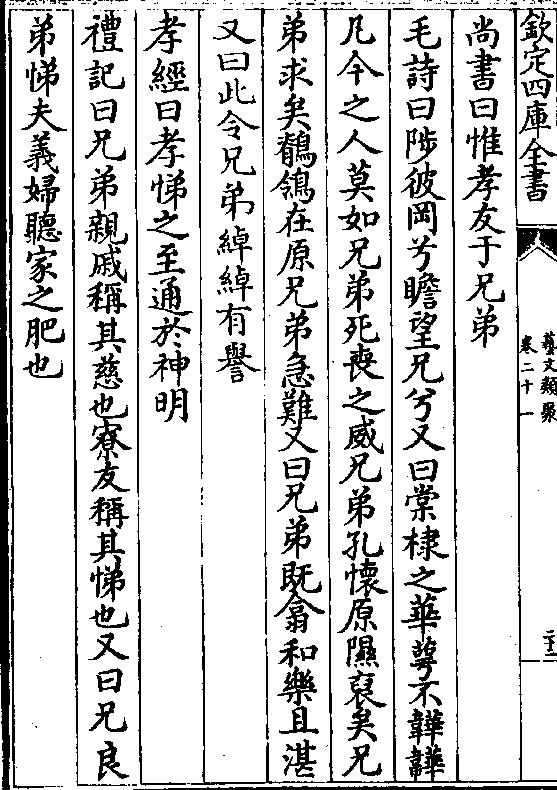 欽定四庫全書
藝文類聚
卷二十一
二十三
尚書曰惟孝友于兄弟
毛詩曰陟彼岡兮瞻望兄兮又曰棠棣之華萼不韡韡
凡今之人莫如兄弟死喪之威兄弟孔懷原隰裒矣兄
弟求矣鶺鴒在原兄弟急難又曰兄弟既翕和樂且湛
又曰此令兄弟綽綽有譽
孝經曰孝悌之至通於神明
禮記曰兄弟親戚稱其慈也寮友稱其悌也又曰兄良
弟悌夫義婦聽家之肥也